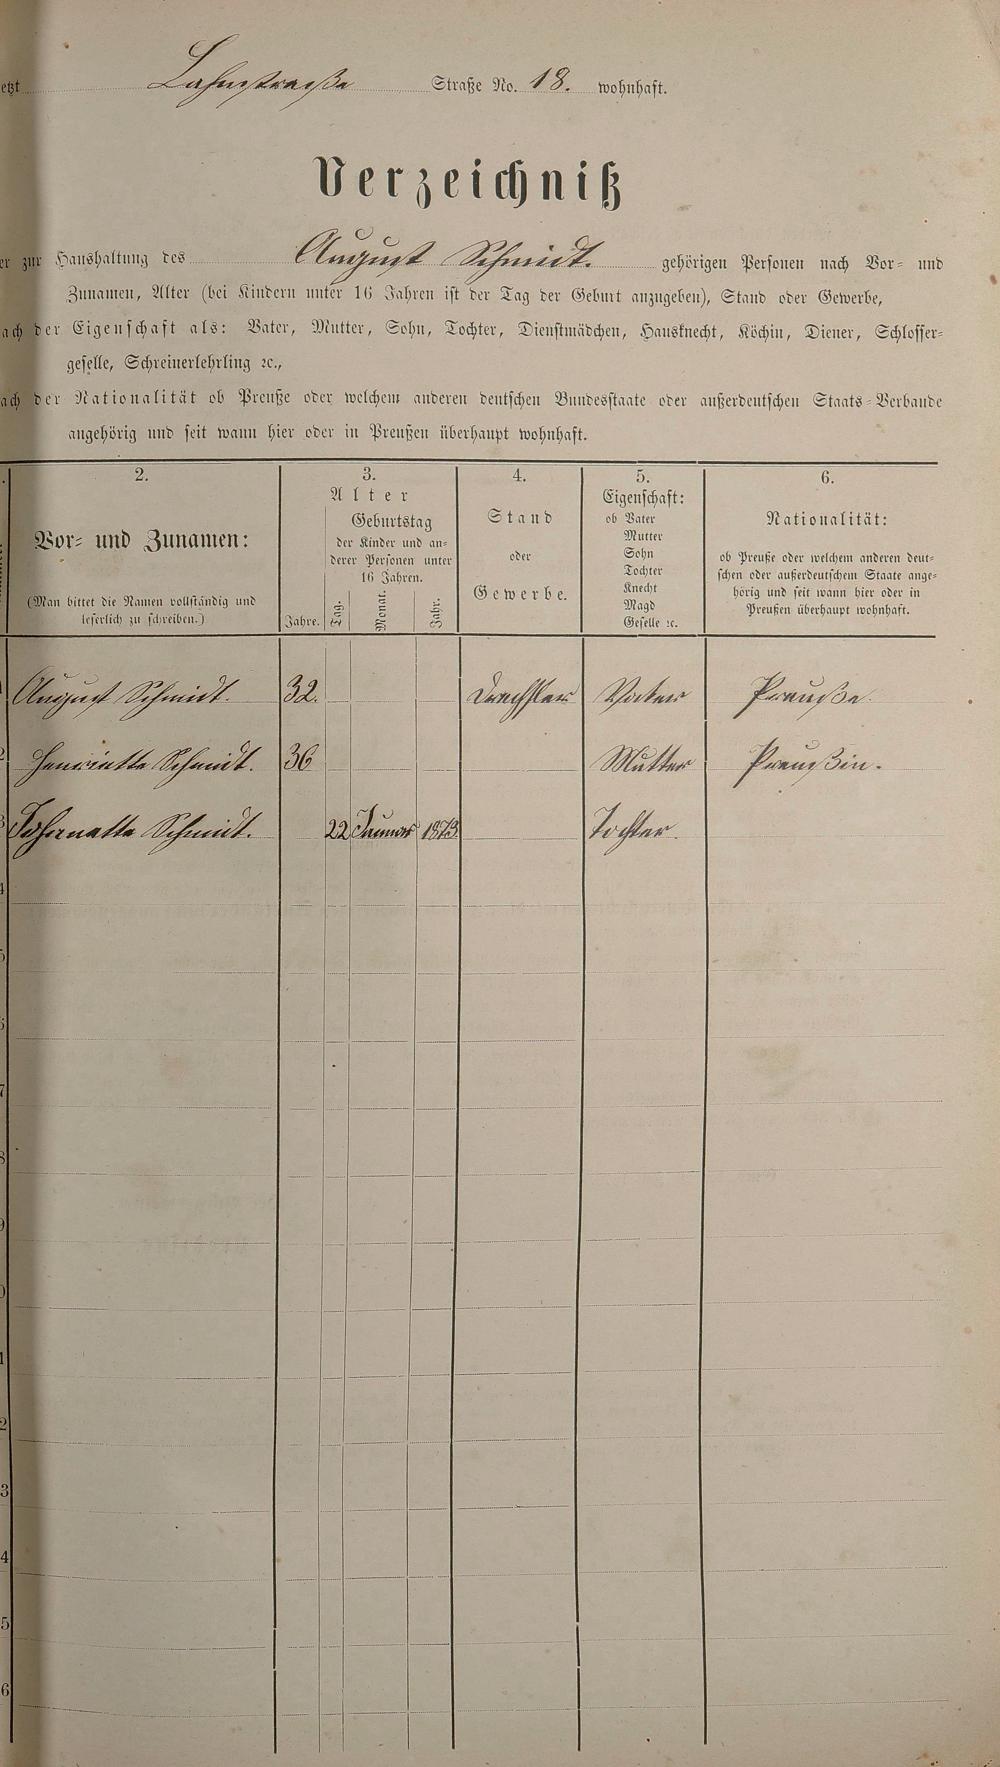 etzt Lahnstraße Straße No. 18. wohnhaft.
Verzeichniß
er zur Haushaltung des August Schmidt. gehörigen Personen nach Vor- und
Zunamen, Alter (bei Kindern unter 16 Jahren ist der Tag der Geburt anzugeben), Stand oder Gewerbe,
ach der Eigenschaft als: Vater, Mutter, Sohn, Tochter, Dienstmädchen, Hausknecht, Köchin, Diener, Schlosser-
geselle, Schreinerlehrling ꝛc.,
ach der Nationalität ob Preuße oder welchem anderen deutschen Bundesstaate oder außerdeutschen Staats-Verbande
angehörig und seit wann hier oder in Preußen überhaupt wohnhaft.
2.
Vor- und Zunamen:
(Man bittet die Namen vollständig und
leserlich zu schreiben.)
3.
Alter
Geburtstag
der Kinder und an-
derer Personen unter
16 Jahren.
Jahre. Tag. Monat. Jahr.
4.
Stand
oder
Gewerbe.
5.
Eigenschaft:
ob Vater
Mutter
Sohn
Tochter
Knecht
Magd
Geselle ꝛc.
6.
Nationalität:
ob Preuße oder welchem anderen deut-
schen oder außerdeutschem Staate ange-
hörig und seit wann hier oder in
Preußen überhaupt wohnhaft.
August Schmidt. 32. Drechsler Vater Preuße.
2 Henriette Schmidt. 36 Mutter Preußin.
3 Johanette Schmidt. 22 Januar 1873 Tochter.
4
5
6
7
8
9
0
1
2
3
4
5
6